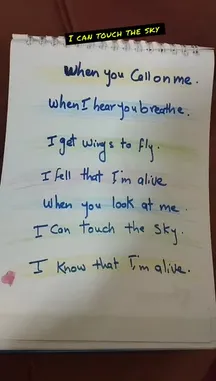 I CAN TOUCH THE SKY
When you Call on me.
when I hear you breathe.
I get wings to fly.
I fell that I'm alive
when you look at me.
I Can touch the sky.
I know that I'm alive.